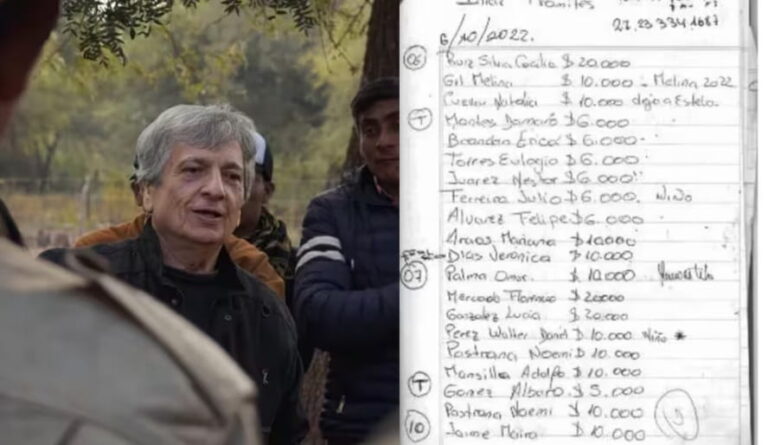 Trámites
27.23 334.1687
6/10/2022.
06 Ruiz Silva Cecilia $ 20.000
Gil Melina $ 10.000 - Melina 2022
Cuellar Natalia $ 10.000 dejo a Estela
T Montes Damaris $ 6.000
Brandan Erica $ 6.000
Torres Eulogio $ 6.000
Juarez Nestor $ 6.000
Ferreira Julio $ 6.000. Niño
Alvarez Felipe $ 6.000
Mariana $ 10.000
Dias Veronica $ 10.000
07 Palma Omar $ 10.000
Mercado Florencio $ 20000
Gonzalez Lucia $ 20.000
Perez Walter Daniel $ 10.000 Niño *
Pastrana Noemi $ 10.000
Mansilla Adolfo $ 10.000
T Gomez Albaro $ 5.000
Pastrana Noemi $ 10.000
10 Jaime Mario $ 10.000